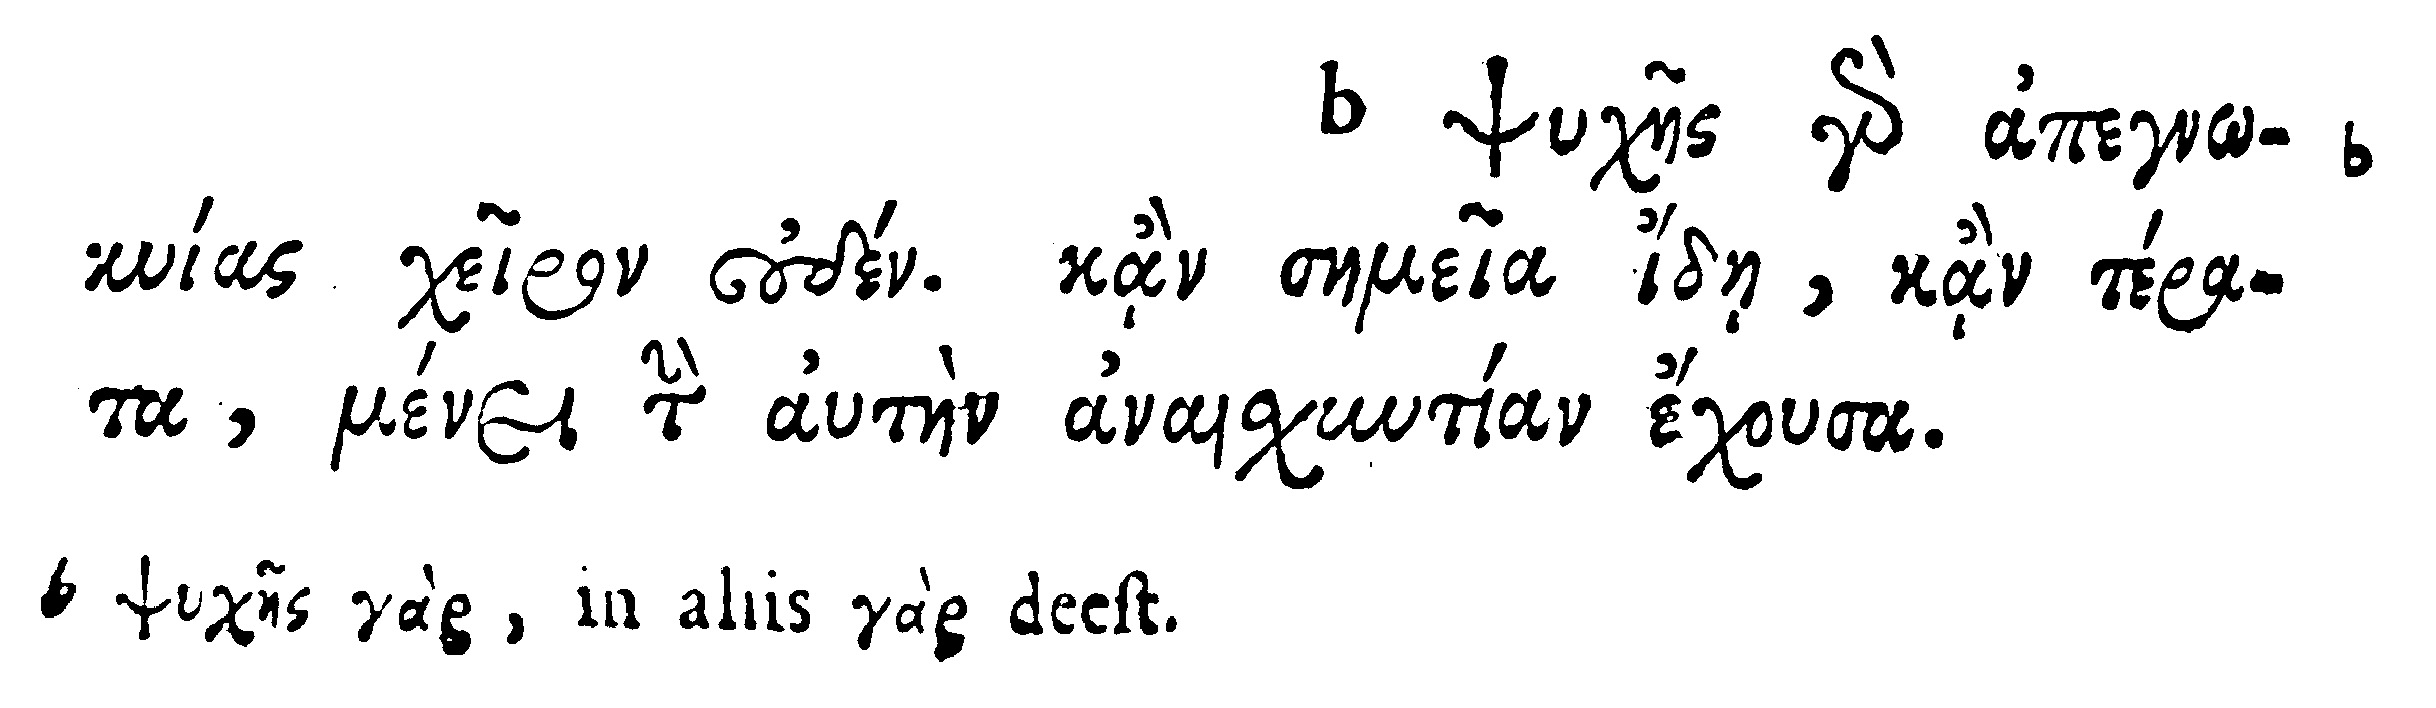 b ψυχῆς γὰρ ἀπεγνω- b
κυίας χεῖρον οὐδέν. κᾂν σημεῖα ἴδῃ, κᾂν τέρα-
τα, μένει τὴν ἀυτὴν ἀναισχυντίαν ἔχουσα.
b ψυχῆς γὰρ, in aliis γὰρ deest.